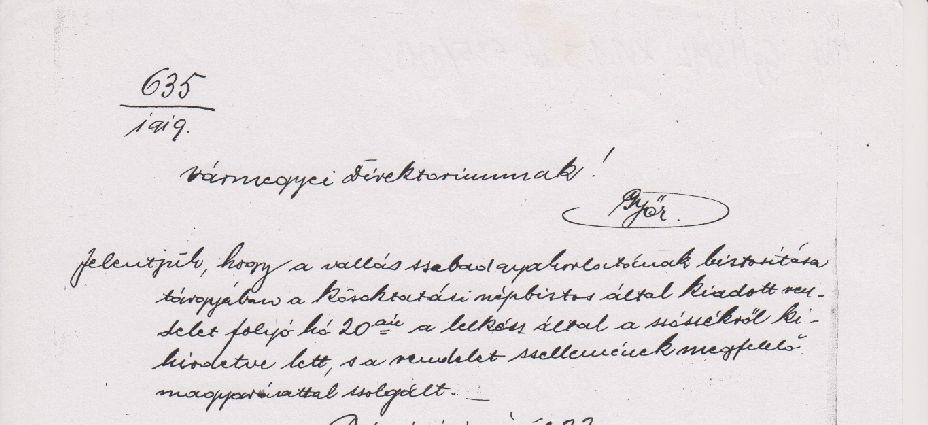 635
1919.
Vármegyei Direktoriumnak!
Győr.
Jelentjük, hogy a vallás szabadgyakorlatának biztosítása
tárgyában a közoktatási népbiztos által kiadott ren-
delet folyó hó 20 án a lelkész által a szószékről ki-
hirdetve lett, s a rendelet szellemének megfelelő
magyarázattal szolgált. —